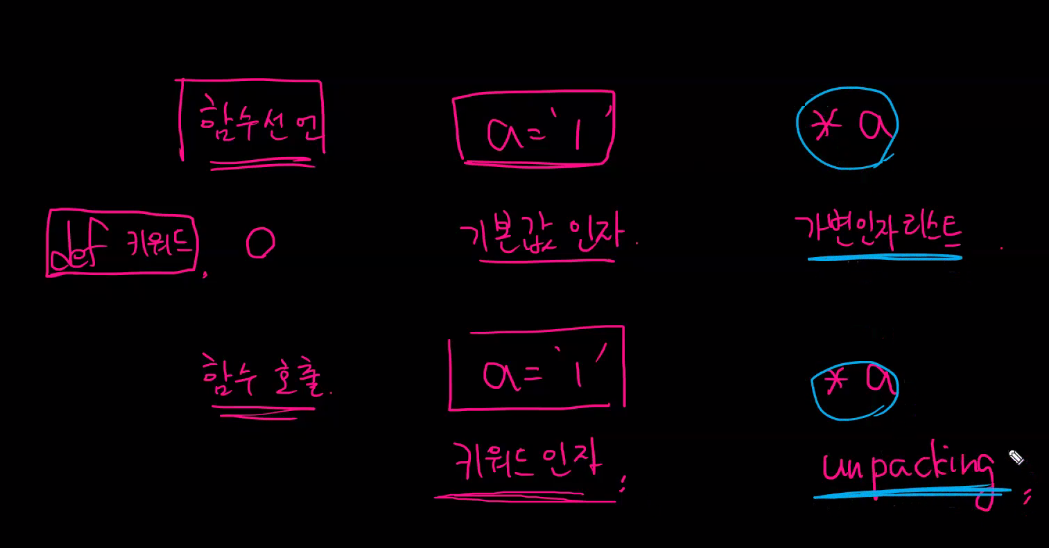 함수선언 a='1' *a
def 키워드, O 기본값 인자. 가변인자리스트.
함수 호출. a='1' *a
키워드인자; unpacking;